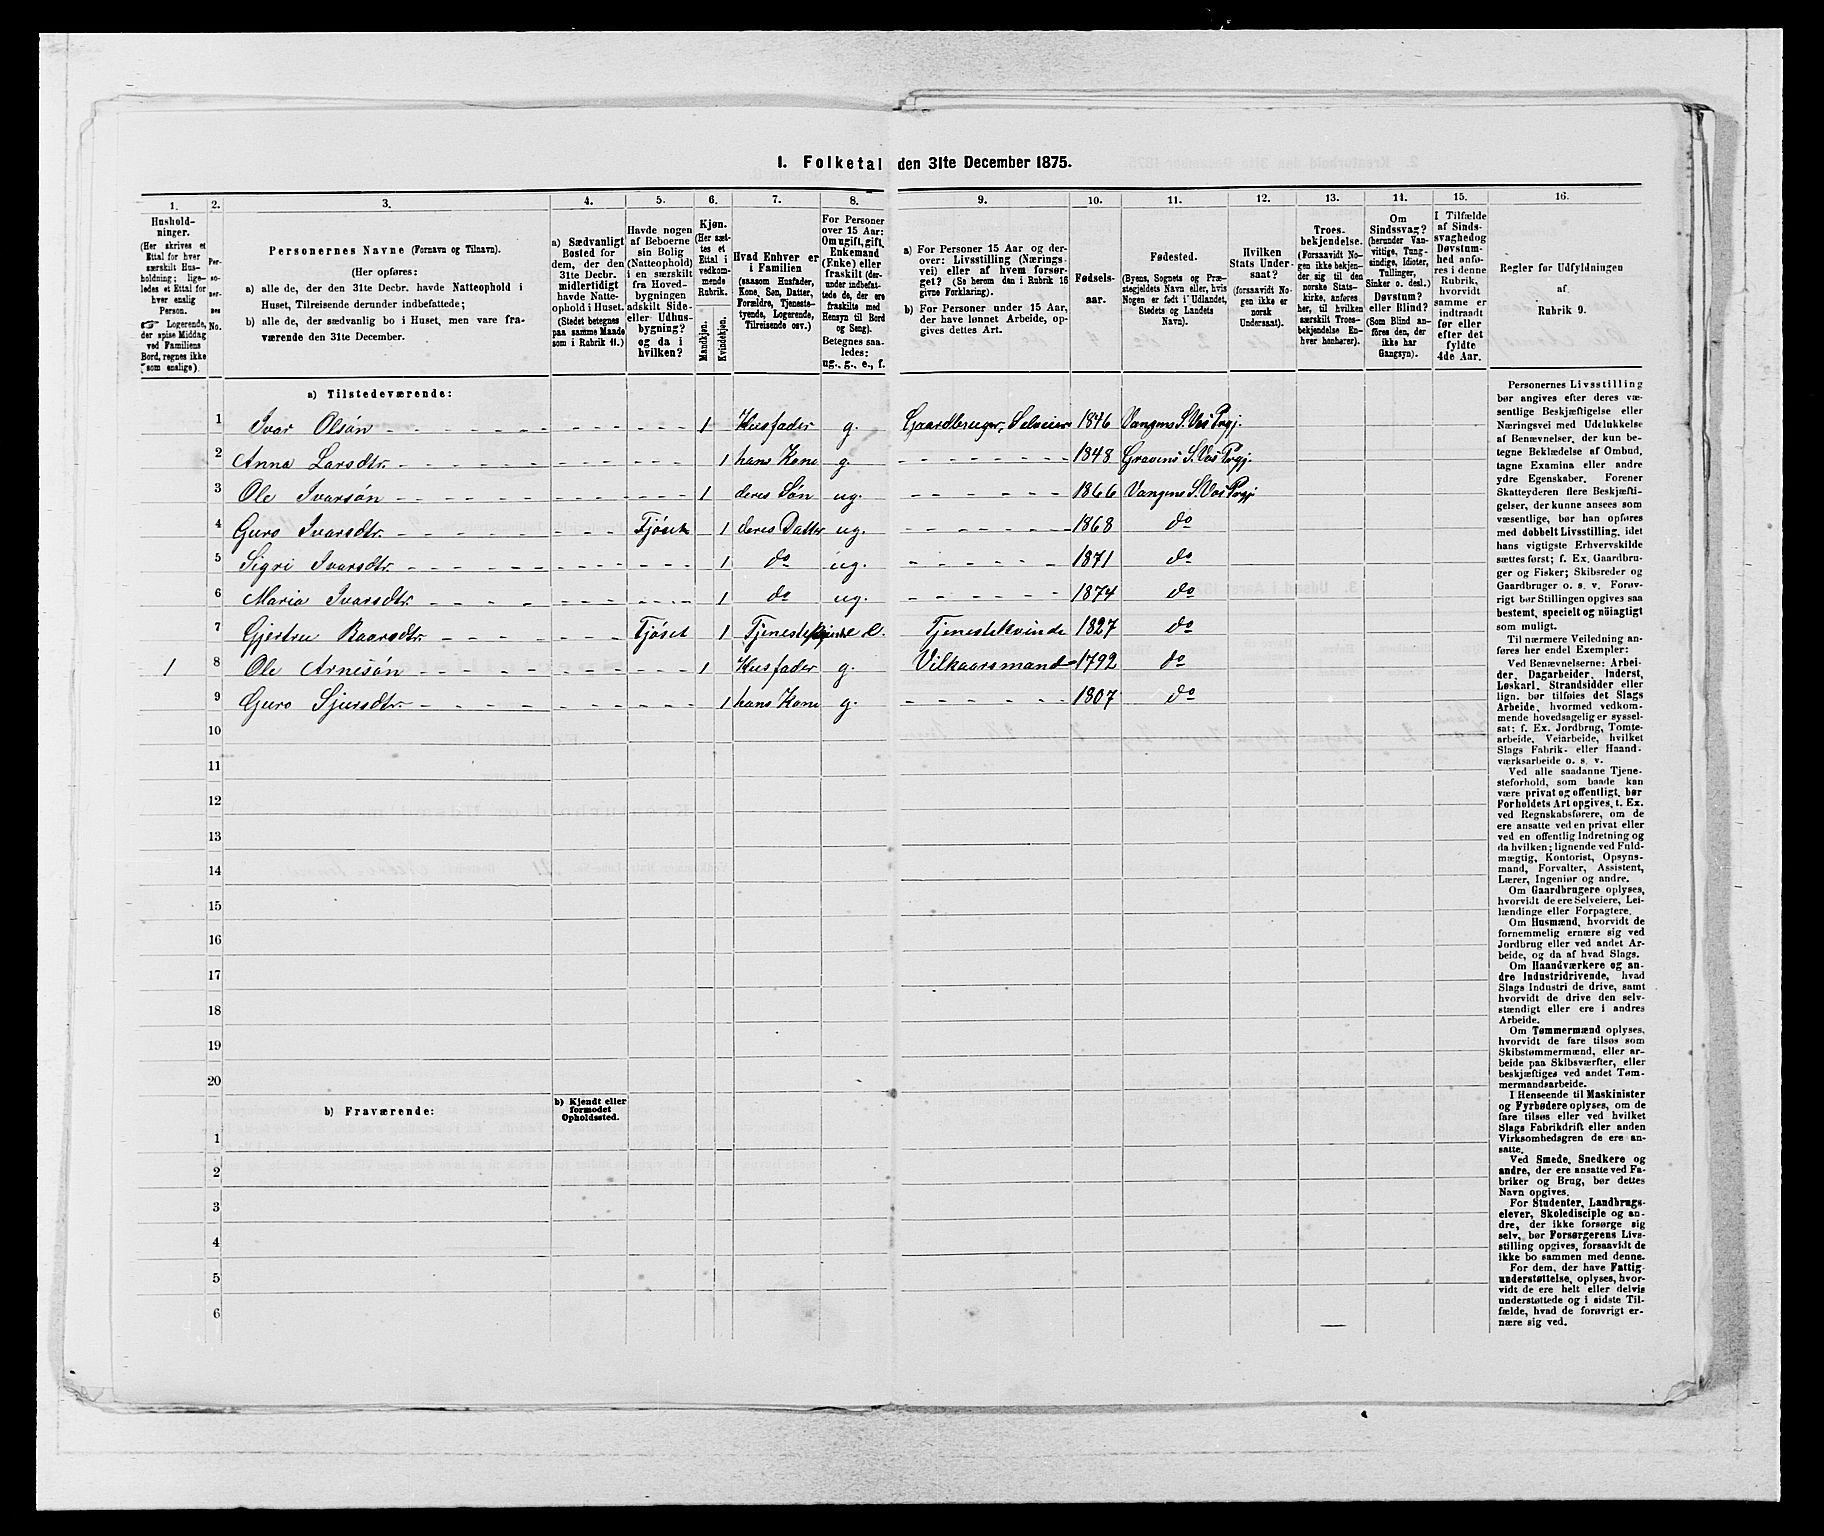 1. Folketal den 31te December 1875.
1. 2. 3. 4. 5. 6. 7. 8. 9. 10. 11. 12. 13. 14. 15. 16.
Hushold-
ninger.
(Her skrives et
Ettal for hver
særskilt Hus-
holdning; lige-
ledes et Ettal for
hver enslig
Person.
☞ Logerende,
der spise Middag
ved Familiens
Bord, regnes ikke
som enslige).
Per-
so-
ner-
nes
No.
Personernes Navne (Fornavn og Tilnavn).
(Her opføres:
a) alle de, der den 31te Decbr. havde Natteophold i
Huset, Tilreisende derunder indbefattede;
b) alle de, der sædvanlig bo i Huset, men vare fra-
værende den 31te December.
a) Sædvanligt
Bosted for
dem, der den
31te Decbr.
midlertidigt
havde Natte-
ophold i Huset.
(Stedet betegnes
paa samme Maade
som i Rubrik 11.)
Havde nogen
af Beboerne
sin Bolig
(Natteophold)
i en særskilt
fra Hoved-
bygningen
adskilt Side-
eller Udhus-
bygning?
og da i
hvilken?
Kjøn.
(Her sæt-
tes et
Ettal i
vedkom-
mende
Rubrik.
Mandkjøn.
Kvindekjøn.
Hvad Enhver er
i Familien
(saasom Husfader,
Kone, Søn, Datter,
Forældre, Tjeneste-
tyende, Logerende,
Tilreisende osv.)
For Personer
over 15 Aar:
Om ugift, gift,
Enkemand
(Enke) eller
fraskilt (der-
under indbefat-
tede de, der ere
fraskilte med
Hensyn til Bord
og Seng).
Betegnes saa-
ledes:
ug., g., e., f.
a) For Personer 15 Aar og der-
over: Livsstilling (Nærings-
vei) eller af hvem forsør-
get? (Se herom den i Rubrik 16
givne Forklaring).
b) For Personer under 15 Aar,
der have lønnet Arbeide, op-
gives dettes Art.
Fødsels-
aar.
Fødested.
(Byens, Sognets og Præ-
stegjeldets Navn, eller, hvis
Nogen er født i Udlandet,
Stedets og Landets
Navn).
Hvilken
Stats Under-
saat?
(forsaavidt No-
gen ikke er
norsk
Undersaat).
Troes-
bekjendelse.
(Forsaavidt No-
gen ikke bekjen-
der sig til den
norske Stats-
kirke, anføres
her, til hvilken
særskilt Troes-
bekjendelse En-
hver henhører).
Om
Sindssvag?
(herunder Van-
vittige, Tung-
sindige, Idioter,
Tullinger,
Sinker o. desl.)
Døvstum?
eller Blind?
(Som Blind an-
føres den, der
ikke har
Gangsyn).
I Tilfælde
af Sinds-
svaghed og
Døvstum-
hed anfø-
res i denne
Rubrik,
hvorvidt
samme er
indtraadt
før eller
efter det
fyldte
4de Aar.
Regler for Udfyldningen
af
Rubrik 9.
a) Tilstedeværende:
1 Ivar Olsøn 1 Husfader g. Gaardbruger, Selveier 1846 Vangens S. Vos Prgj.
2 Anna Larsdtr. 1 hans Kone g. 1848 Gravens S. Vos Prgj.
3 Ole Ivarsøn 1 deres Søn ug. 1866 Vangens S. Vos Prgj
4 Guro Ivarsdtr. Fjøset 1 deres Datter ug. 1868 do
5 Sigri Ivarsdtr. 1 do ug. 1871 do
6 Maria Ivarsdtr. 1 do ug. 1874 do
7 Gjertru Baarsdtr. Fjøset 1 Tjenestekvinde e. Tjenestekvinde 1827 do
1 8 Ole Arnesøn 1 Husfader g. Vilkaarsmand 1792 do
9 Guro Sjursdtr. 1 hans Kone g. 1807 do
10
11
12
13
14
15
16
17
18
19
20
b) Fraværende:
b) Kjendt eller
formodet
Opholdssted.
1
2
3
4
5
6
Personernes Livsstilling
bør angives efter deres væ-
sentlige Beskjæftigelse eller
Næringsvei med Udelukkelse
af Benævnelser, der kun be-
tegne Beklædelse af Ombud,
tagne Examina eller andre
ydre Egenskaber. Forener
Skatteyderen flere Beskjæfti-
gelser, der kunne ansees som
væsentlige, bør han opføres
med dobbelt Livsstilling, idet
hans vigtigste Erhvervskilde
sættes først; f. Ex. Gaardbru-
ger og Fisker; Skibsreder og
Gaardbruger o. s. v. Forøv-
rigt bør Stillingen opgives saa
bestemt, specielt og nøiagtigt
som muligt.
Til nærmere Veiledning an-
føres her endel Exempler:
Ved Benævnelserne: Arbei-
der, Dagarbeider, Inderst,
Løskarl, Strandsidder eller
lign. bør tilføies det Slags
Arbeide, hvormed vedkom-
mende hovedsagelig er syssel-
sat; f. Ex. Jordbrug, Tomte-
arbeide, Veiarbeide, hvilket
Slags Fabrik- eller Haand-
værksarbeide o. s. v.
Ved alle saadanne Tjene-
steforhold, som baade kan
være privat og offentligt, bør
Forholdets Art opgives, t. Ex.
ved Regnskabsførere, om de
ere ansatte ved en privat eller
ved en offentlig Indretning og
da hvilken; lignende ved Fuld-
mægtig, Kontorist, Opsyns-
mand, Forvalter, Assistent,
Lærer, Ingeniør og andre.
Om Gaardbrugere oplyses,
hvorvidt de ere Selveiere, Lei-
lændinge eller Forpagtere.
Om Husmænd, hvorvidt de
fornemmelig ernære sig ved
Jordbrug eller ved andet Ar-
beide, og da af hvad Slags.
Om Haandværkere og an-
dre Industridrivende, hvad
Slags Industri de drive, samt
hvorvidt de drive den selv-
stændigt eller ere i andres
Arbeide.
Om Tømmermænd oplyses,
hvorvidt de fare tilsøs som
Skibstømmermænd, eller ar-
beide paa Skibsværfter, eller
beskjæftiges ved andet Tøm-
mermandsarbeide.
I Henseende til Maskinister
og Fyrbødere oplyses, om de
fare tilsøs eller ved hvilket
Slags Fabrikdrift eller anden
Virksomhedsgren de ere an-
satte.
Ved Smede, Snedkere og
andre, der ere ansatte ved Fa-
briker og Brug, bør dettes
Navn opgives.
For Studenter, Landbrugs-
elever, Skoledisciple og an-
dre, der ikke forsørge sig
selv, bør Forsørgerens Livs-
stilling opgives, forsaavidt de
ikke bo sammen med denne.
For dem, der have Fattig-
understøttelse, oplyses, hvor-
vidt de ere helt eller delvis
understøttede og i sidste Til-
fælde, hvad de forøvrigt er-
nære sig ved.